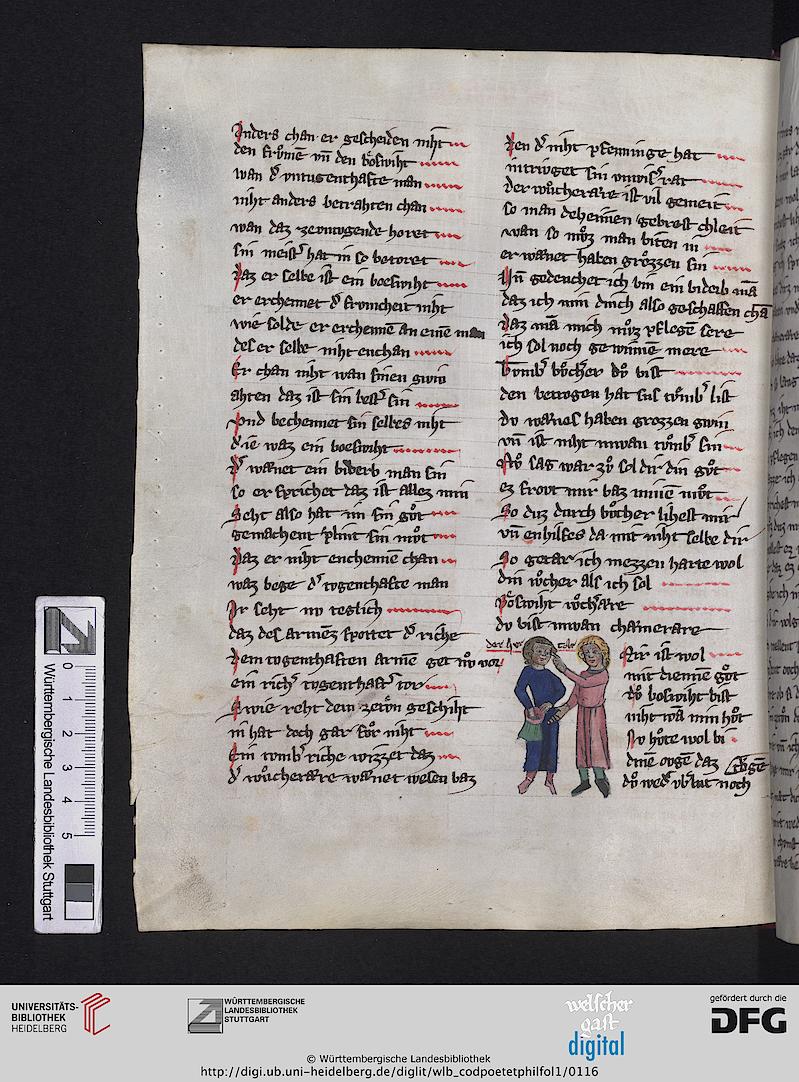 Anders chan er gescheiden niht
den frumē vn̄ den boswiht
wan d͛ vntugenthafte man
niht anders betrahten chan
wan daz zernwgende horet
sin meist͛ hat in so betoret
Daz er selbe ist ein boeswiht
er erchennet d͛ frumcheit niht
wie solde er erchennē an einē man
des er selbe niht enchan
Er chan niht wan sinen gwin
ahten daz ist sin best͛ sin
vnd bechennet sin selbes niht
waz ein boeswiht
D͛ wænet ein biderb man sin
so er sprichet daz ist allez min
Seht also hat in sin gůt
gemachent plint sin můt
Daz er niht enchennē chan
waz bege d͛ tvgenthafte man
Ir seht nv teglich
daz des armēs spottet d͛ riche
Dem tvgenthaften armē get vor
ein rich͛ tvgenthaft͛ tor
Swie reht dem geschiht
in hat doch gar fůr niht
Ein tumb͛ riche wizzet daz
d͛ wůcherære wænet wesen baz
Den d͛ niht pfenninge hat
in trivget sin vnwis͛ rat
der wůcherare ist vil gemeit
so man deheinen gebrest chleit
wan so můz man biten in
er wænet haben grozzen sin
Vn̄ gedenchet ich bin ein biderb mā
daz ich min dinch also geschaffen chā
Daz mā mich můz pflegen sere
ich sol noch gewinnē mere
tvmb͛ wůcher dv bist
den betrogen hat sus tvmb͛ list
dv wænes haben grozzen gwin
vn̄ ist niht niwan tumb͛ sin
Nv sag war zů sol dir din gůt
ez frovt mir baz minē můt
So duz durch wůcher lihest mir
vn̄ enhilfes da mit niht selbe dir
So getar ich mezzen harte wol
din wůcher als ich sol
Bőswiht wůch͛ære
dv bist niwan chamerare
der her
Mir ist wol
mit dienen gůt
dv boswiht bist
niht wā min hůt
Nv hůte wol bi
dinē ovgē daz
dv wed͛ noch
0 1 2 3 4 5
Württembergische Landesbibliothek Stuttgart
UNIVERSITÄTS-
BIBLIOTHEK
HEIDELBERG
WÜRTTEMBERGISCHE
LANDESBIBLIOTHEK
STUTTGART
welscher
gast
digital
gefördert durch die
DFG
© Württembergische Landesbibliothek
http://digi.ub.uni-heidelberg.de/diglit/wlb_codpoetetphilfol1/0116